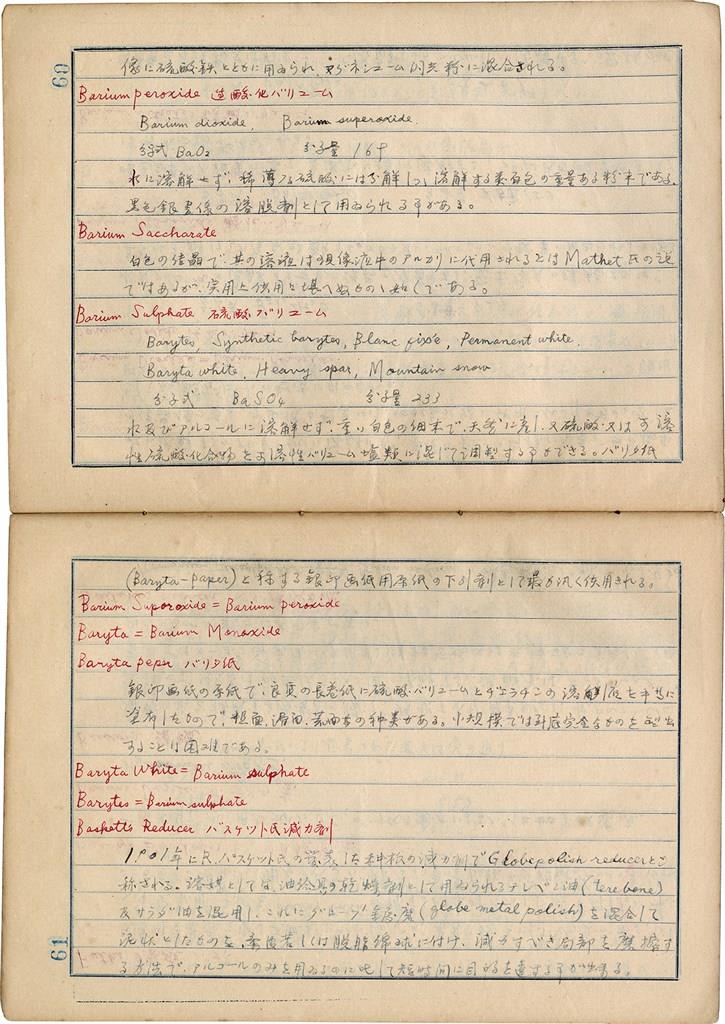 60
像に硫酸鉄とともに用ゐられ、マグネシューム閃光粉に混合される。
Barium peroxide 過酸化バリューム
Barium dioxide, Barium superoxide.
分子式 BaO₂ 分子量 169
水に溶解せず、稀薄なる硫酸には分解しつゝ溶解する類白色の重量ある粉末である。
黒色銀畫像の溶脱剤として用ゐられる事がある。
Barium Saccharate
白色の結晶で、其の溶液は現像液中のアルカリに代用されるとは Mathet 氏の説
ではあるが、実用上使用に堪へぬものゝ如くである。
Barium Sulphate 硫酸バリューム
Barytes, Synthetic barytes, Blanc fixe, Permanent white.
Baryta white, Heavy spar, Mountain snow
分子式 BaSO₄ 分子量 233
水及びアルコールに溶解せず、重い白色の細末で、天然に産し、又硫酸又は可溶
性硫酸化合物を可溶性バリューム塩類に混じて調製する事ができる。バリタ紙
(Baryta-paper) と称する銀印画紙用原紙の下引剤として最も汎く使用される。
Barium Superoxide = Barium peroxide
Baryta = Barium Monoxide
Baryta peper バリタ紙
銀印画紙の原紙で、良質の長巻紙に硫酸バリュームとゼラチンの溶解液を平均に
塗布したもので、粗面、滑面、等の種類がある。小規模では到底完全なものを
することは困難である。
Baryta White = Barium sulphate
Barytes = Barium sulphate
Baskett's Reducer バスケット氏減力剤
1901年にR.バスケット氏の発表した減力剤で Globe polish reducer とも
称される。溶媒としては、油絵具の乾燥剤として用ゐられるテレベン油 (terebene)
及サラダ油を混用し、これにグローブ金属磨 (globe metal polish) を混合して
泥状としたものを、柔皮若しくは脱脂綿球に付け、減力すべき局部を磨擦す
る方法で、アルコールのみを用ゐるのに比して短時間に目的を達する事が出来る。
61